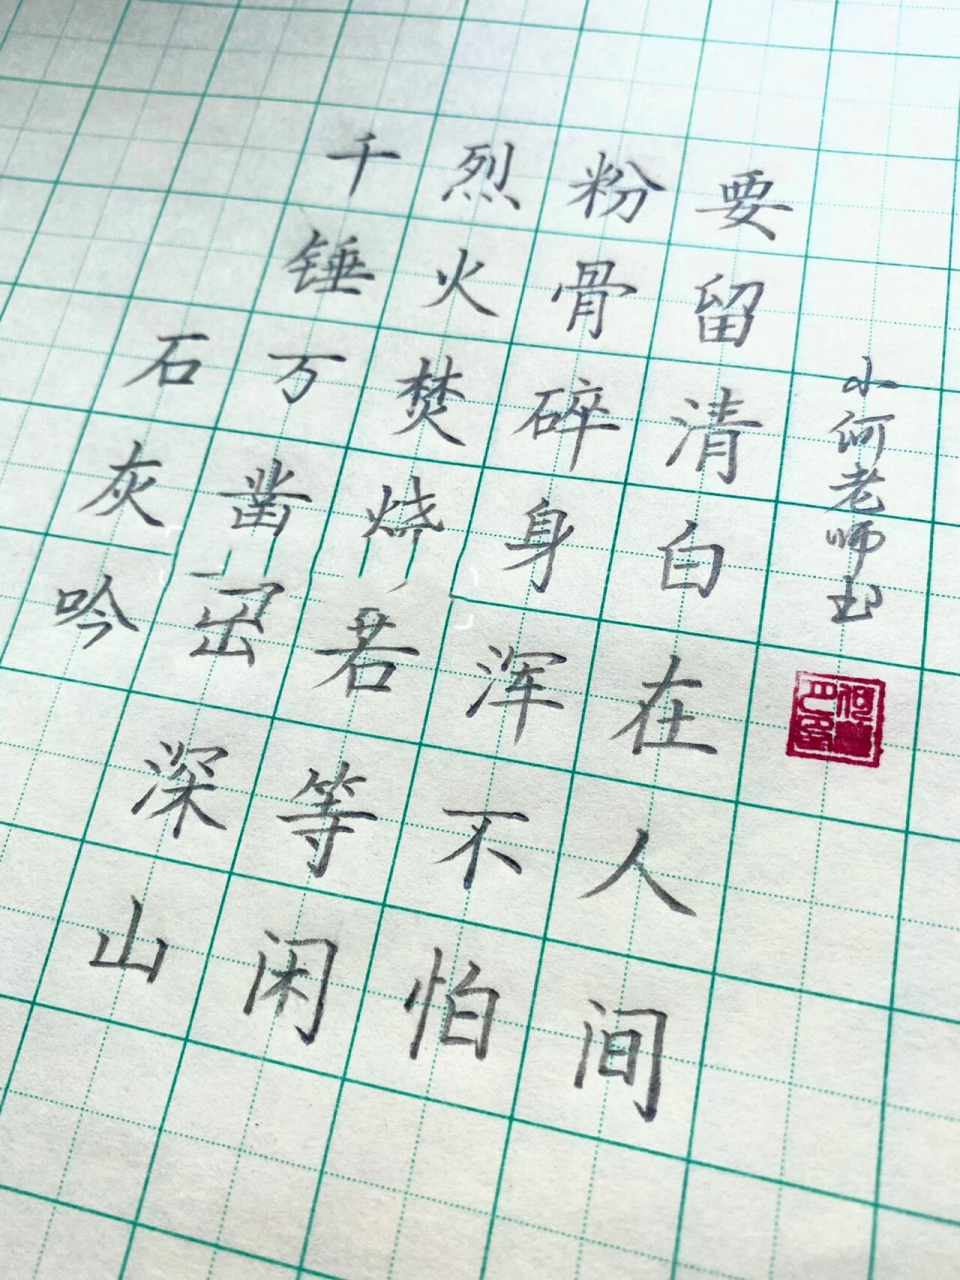 石灰吟
千锤万凿深山
烈火焚烧若等闲
粉骨碎身浑不怕
要留清白在人间
小河老师书